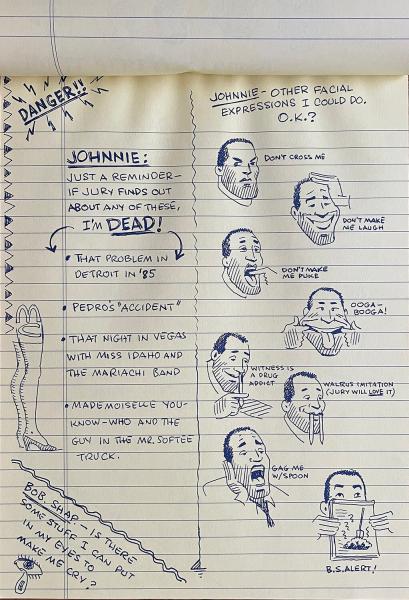 DANGER!!
JOHNNIE:
JUST A REMINDER-
IF JURY FINDS OUT
ABOUT ANY OF THESE,
I'M DEAD!
• THAT PROBLEM IN
DETROIT IN '85
• PEDRO'S "ACCIDENT"
• THAT NIGHT IN VEGAS
WITH MISS IDAHO AND
THE MARIACHI BAND
• MADEMOISELLE YOU-
KNOW-WHO AND THE
GUY IN THE MR. SOFTEE
TRUCK.
BOB, SHAP.- IS THERE
SOME STUFF I CAN PUT
IN MY EYES TO
MAKE ME CRY?
JOHNNIE- OTHER FACIAL
EXPRESSIONS I COULD DO.
O.K.?
DON'T CROSS ME
DON'T MAKE
ME LAUGH
DON'T MAKE
ME PUKE
OOGA-
BOOGA!
WITNESS IS
A DRUG
ADDICT
WALRUS IMITATION
(JURY WILL LOVE IT)
GAG ME
W/SPOON
B.S. ALERT!